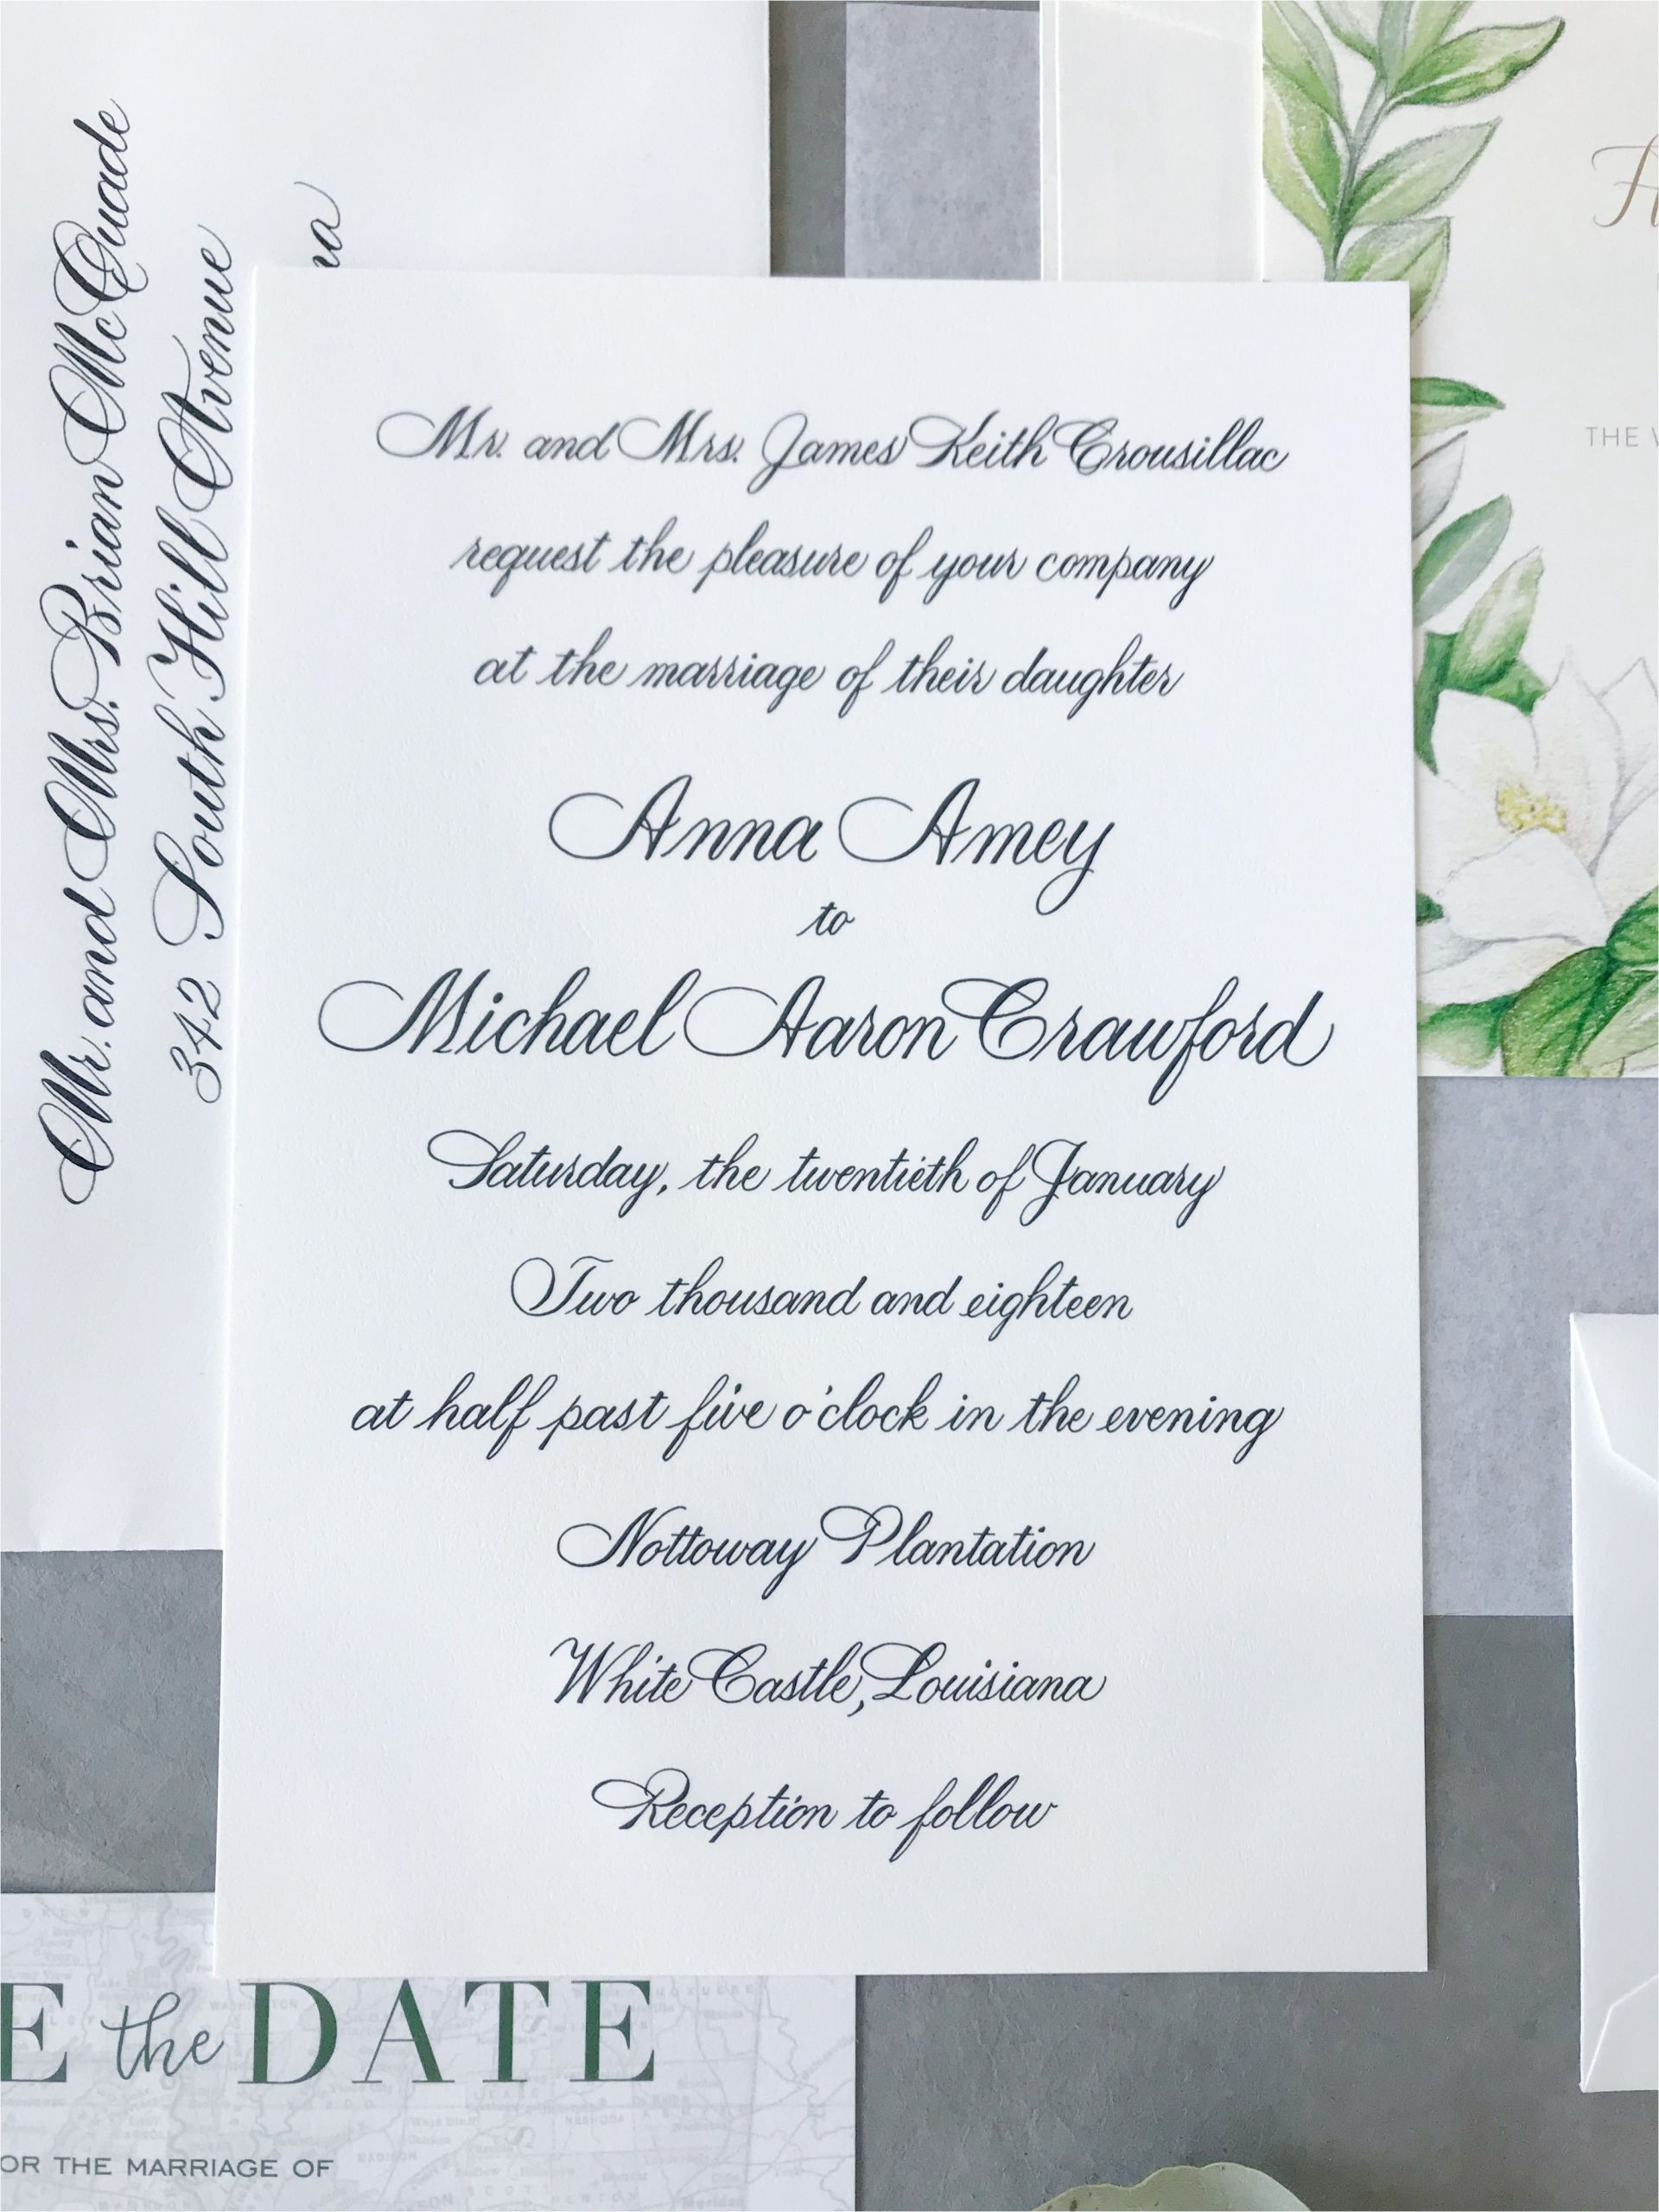 Mr. and Mrs. Brian McQuade
342 South Hill Avenue
na
Mr. and Mrs. James Keith Crousillac
request the pleasure of your company
at the marriage of their daughter
Anna Amey
to
Michael Aaron Crawford
Saturday, the twentieth of January
Two thousand and eighteen
at half past five o'clock in the evening
Nottoway Plantation
White Castle, Louisiana
Reception to follow
THE
E the DATE
OR THE MARRIAGE OF